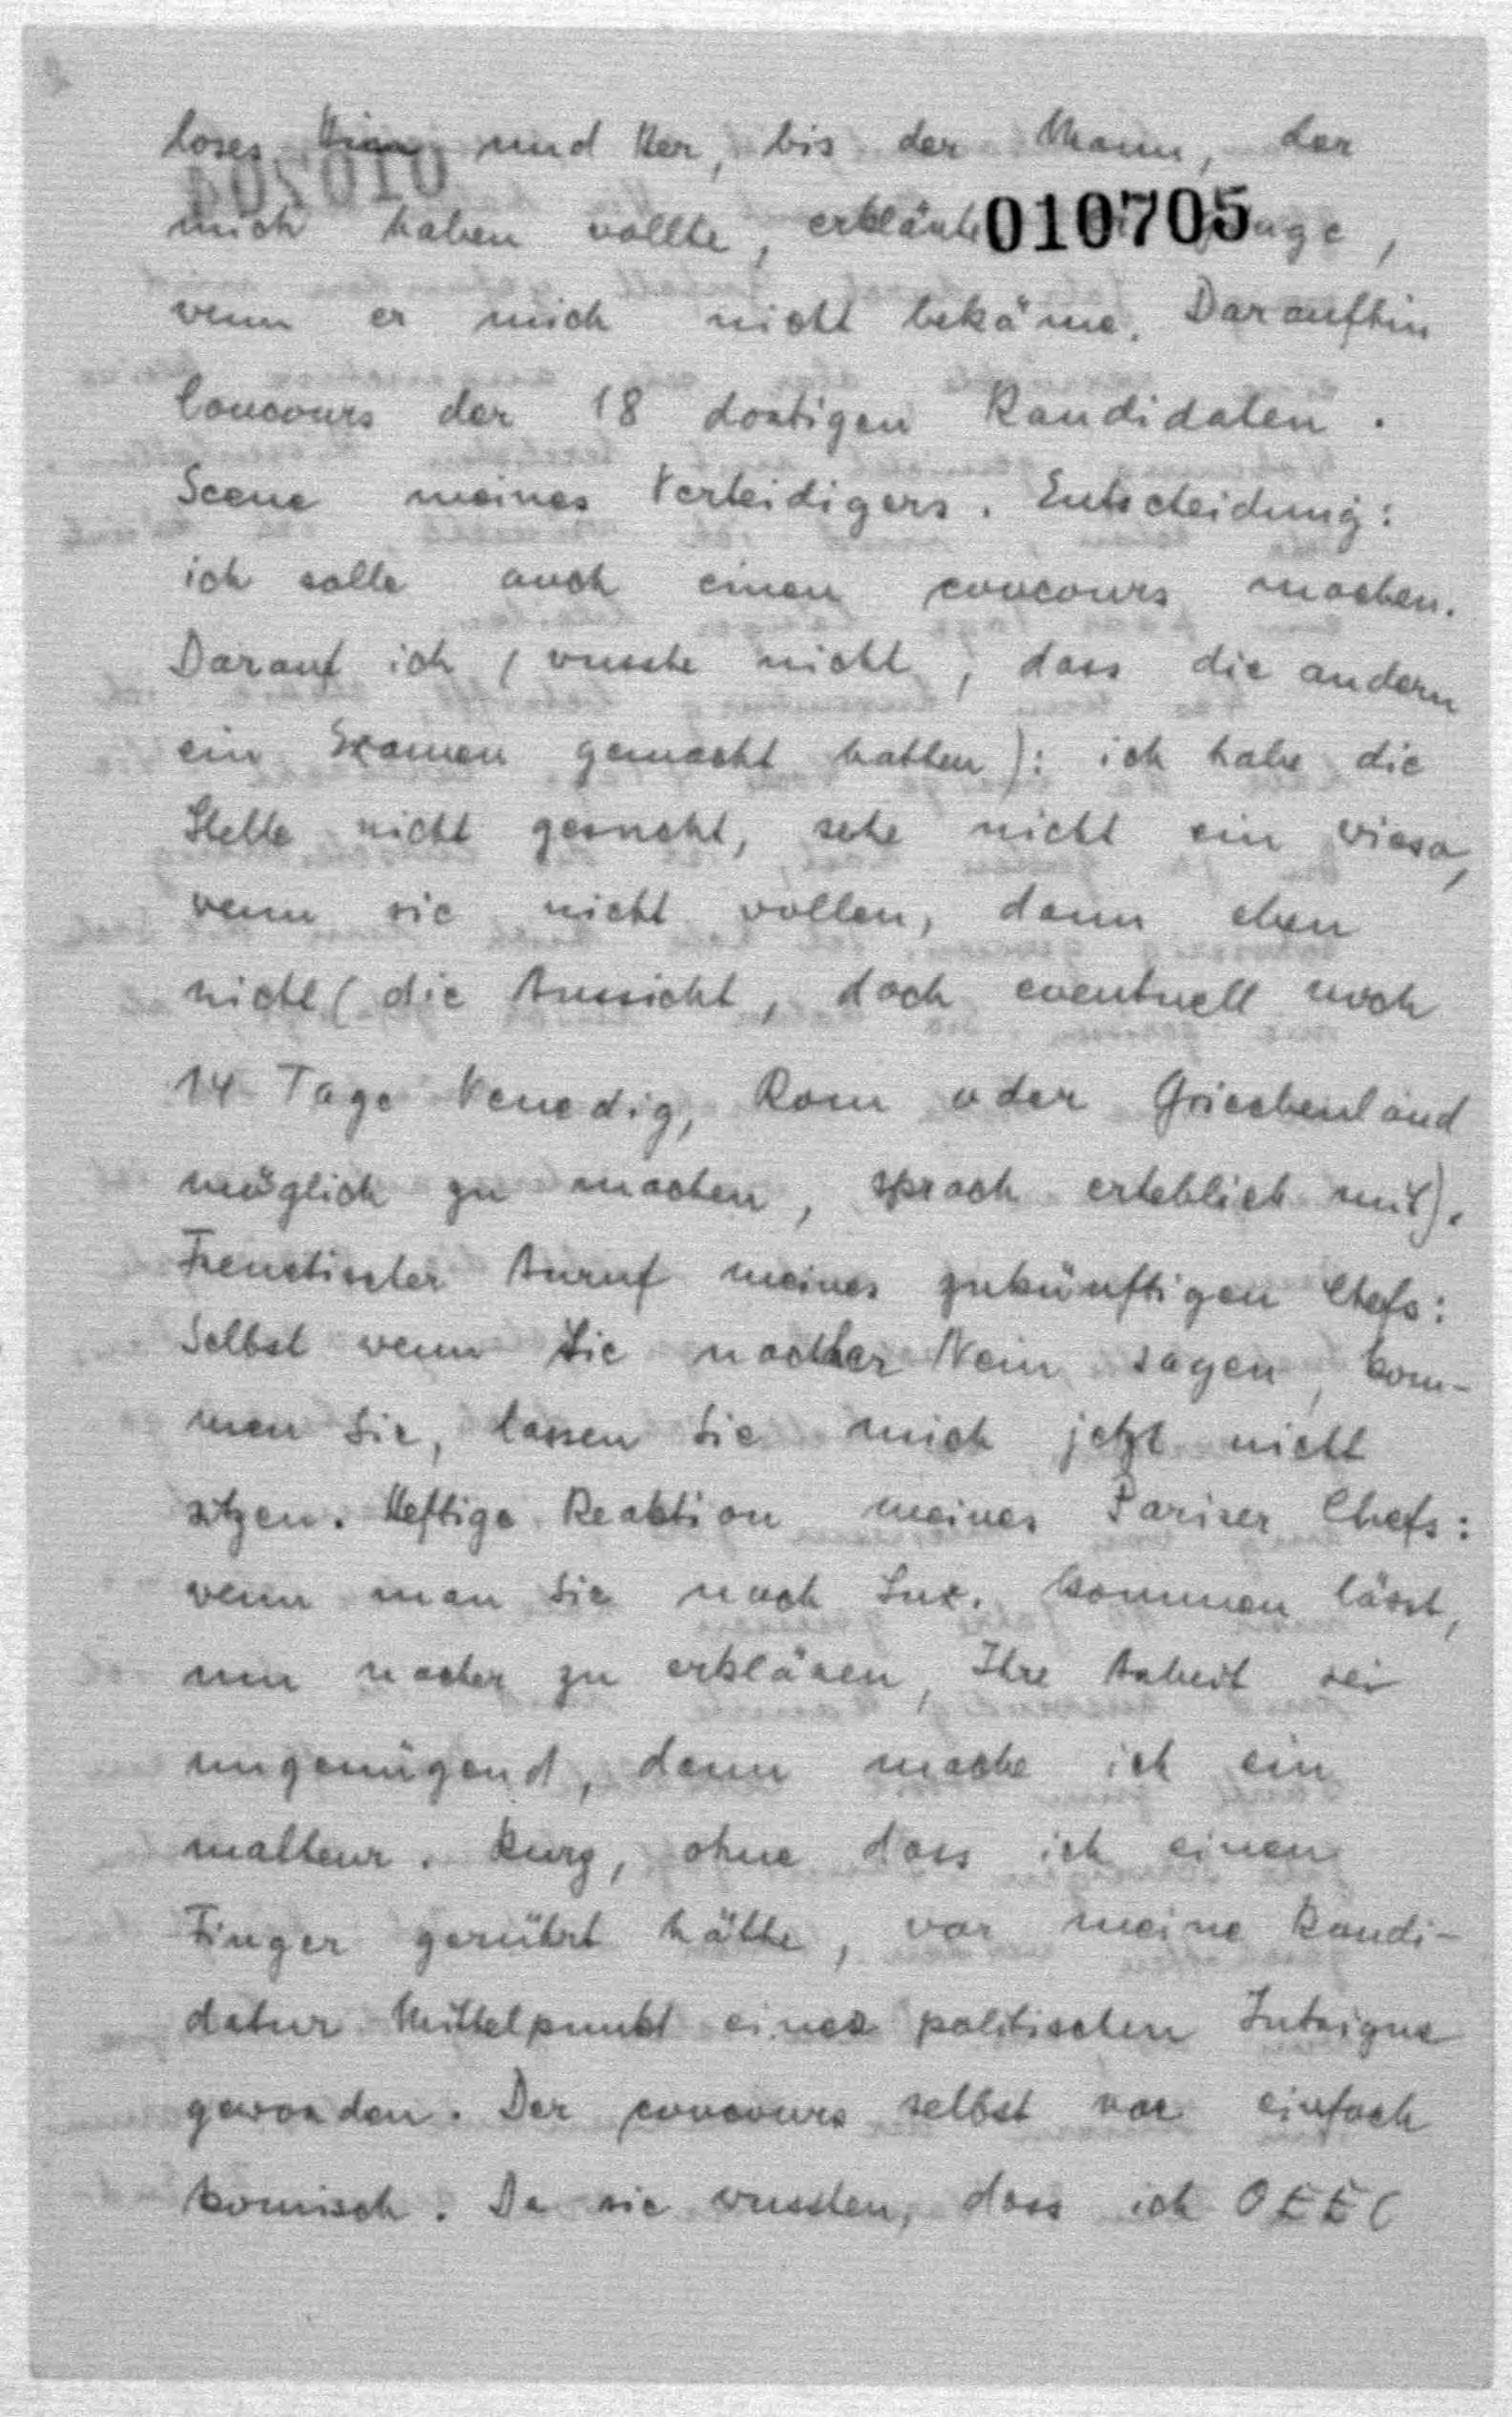 loses Hin und Her, bis der Mann, der
010705
mich haben wollte, erklärte ginge,
wenn er mich nicht bekäme. Daraufhin
Concours der 18 dortigen Kandidaten.
Scene meines Verteidigers. Entscheidung:
ich solle auch einen concours machen.
Darauf ich (wusste nicht, dass die andern
ein Examen gemacht hatten): ich habe die
Stelle nicht gesucht, sehe nicht ein wieso,
wenn sie nicht wollen, dann eben
nicht (die Aussicht, doch eventuell noch
14 Tage Venedig, Rom oder Griechenland
möglich zu machen, sprach erheblich mit).
Frenetischer Anruf meines zukünftigen Chefs:
Selbst wenn Sie nachher Nein sagen, kom-
men Sie, lassen Sie mich jetzt nicht
sitzen. Heftige Reaktion meines Pariser Chefs:
wenn man Sie nach Lux. kommen lässt,
um nacher zu erklären, Ihre Arbeit sei
ungenügend, dann mache ich ein
malheur. Kurz, ohne dass ich einen
Finger gerührt hätte, war meine Kandi-
datur Mittelpunkt einer politischen Intrigue
geworden. Der concours selbst war einfach
komisch. Da sie wussten, dass ich OEEC